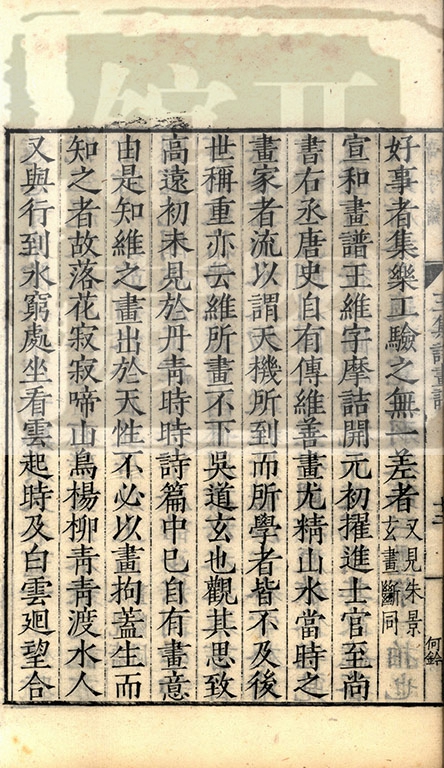 好事者集樂工驗之無一差者又見朱景玄畫斷同
宣和畫譜王維字摩詰開元初擢進士官至尚
書右丞唐史自有傳維善畫尤精山水當時之
畫家者流以謂天機所到而所學者皆不及後
世稱重亦云維所畫不下吳道玄也觀其思致
高遠初未見於丹青時時詩篇中已自有畫意
由是知維之畫出於天性不必以畫拘蓋生而
知之者故落花寂寂啼山鳥楊柳青青渡水人
又與行到水窮處坐看雲起時及白雲迴望合
何鈴